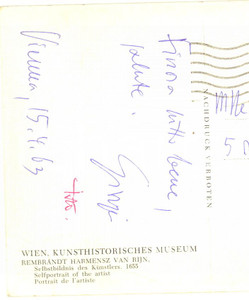 Vienna, 15.4.63
finora tutto bene,
salute.
NACHDRUCK VERBOTEN
WIEN, KUNSTHISTORISCHES MUSEUM
REMBRANDT HARMENSZ VAN RIJN.
Selbstbildnis des Künstlers. 1655
Selfportrait of the artist
Portrait de l'artiste